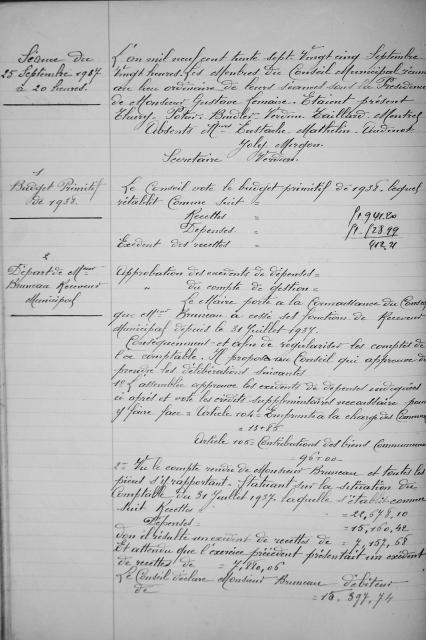 Séance du
25 Septembre 1937
à 20 heures.
L'an mil neuf cent trente sept, Vingt cinq Septembre
Vingt heures. Les Membres du Conseil Municipal réunis
au lieu ordinaire de leurs séances sous la Présidence
de Monsieur Gustave Lemaire. Etaient présent
Thierry. Potin. Verdun. Taillard. Montrel
Absents Mrs Eustache Mathelin. Audinot
Joly Morgon.
Secretaire Verdun.
1
Budget Primitif
de 1938.
Le Conseil vote le budget primitif de 1938. lequel
s'établit comme suit =
Recettes =
Depenses =
Exedent des recettes =
2
Départ de Mr
Bruneau Receveur
Municipal
Approbation des exedents de dépenses =
" du compte de gestion =
Le Maire porte a la connaissance du Conseil
que Mr Bruneau a cessé ses fonctions de Receveur
Municipal depuis le 31 Juillet 1937.
Consequemment et afin de regulariser les comptes de
ce comptable. Il propose au Conseil qui approuve de
prendre les délibérations suivantes
1º L'assemblee approuve les exedents de dépenses indiquées
ci après et vote les crédits supplémentaires necessaire pour
y faire face = Article 104 = Emprunts a la charge des Communes
= 13 + 85
Article 105 = Contributions des biens Communaux
= 96 = 00
2º Vu le compte rendu de Monsieur Bruneau et toutes les
pieces s'y rapportant. Statuant sur la situation du
Comptable du 31 Juillet 1937. laquelle s'établit comme
suit Recettes = 22,678,10
Depenses = = 15,160,42
d'où il résulte un exedent de recettes de = 7,517,68
Et attendu que l'exercice précédent présentait un exedent
de recettes de = 7,880,06
Le Conseil déclare Monsieur Bruneau débiteur
de = 15,397,74